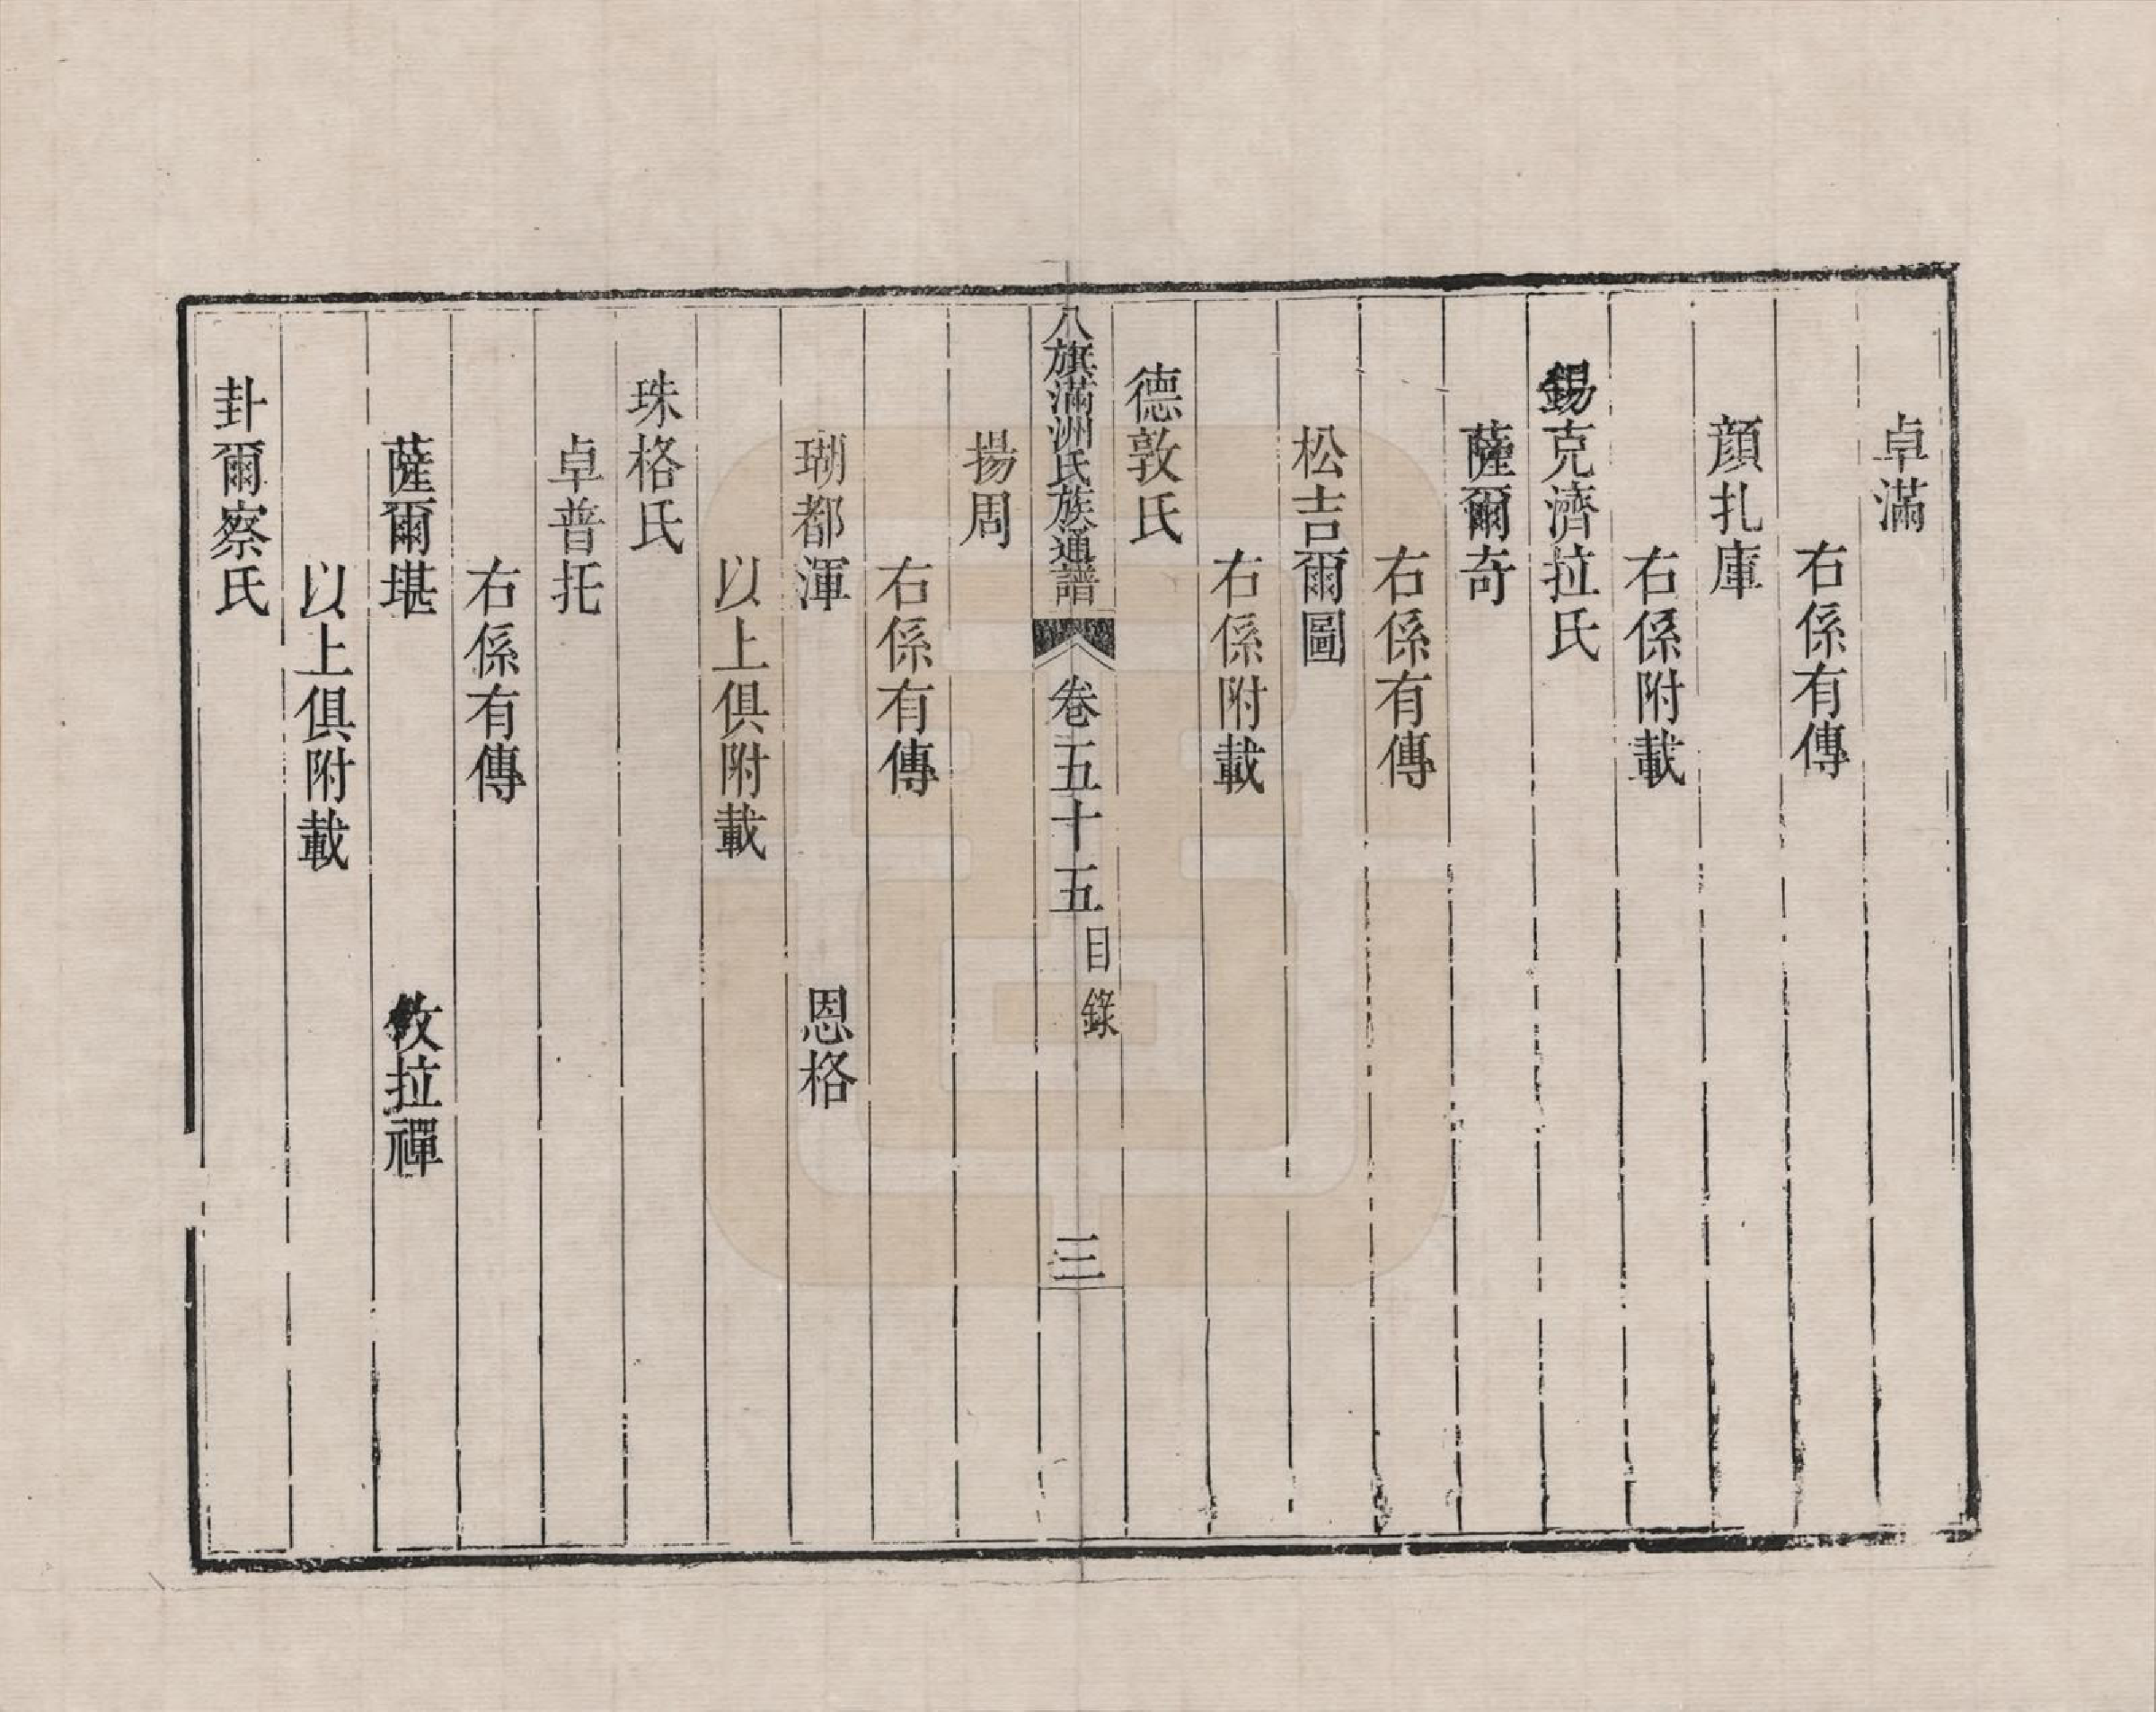 卓滿
右係有傳
顏扎庫
右係附載
錫克濟拉氏
薩爾奇
右係有傳
松吉爾圖
右係附載
德敦氏
八旗滿洲氏族通譜 卷五十五 目錄 三
揚周
右係有傳
瑚都渾 恩格
以上俱附載
珠格氏
卓普托
右係有傳
薩爾堪 敉拉禪
以上俱附載
卦爾察氏